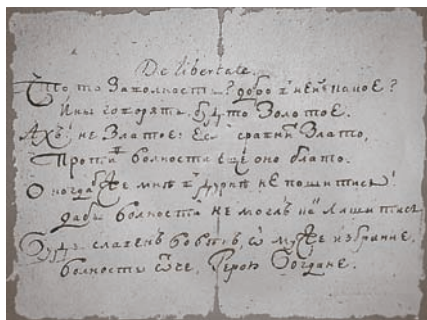 De libertate.
Что то За волность? добро в ней какое?
Ины говорятъ, будто Золотое.
Ахъ! не Златое: Если сравнить Злато,
Противъ волности еще оно блато.
О когда бы же мнѣ в дурнѣ не пошитись!
дабы волности не моглъ как лишитись
Будь славенъ вовѣкъ, ѿ муже избранне,
волности Ѿче, Герою Богдане.